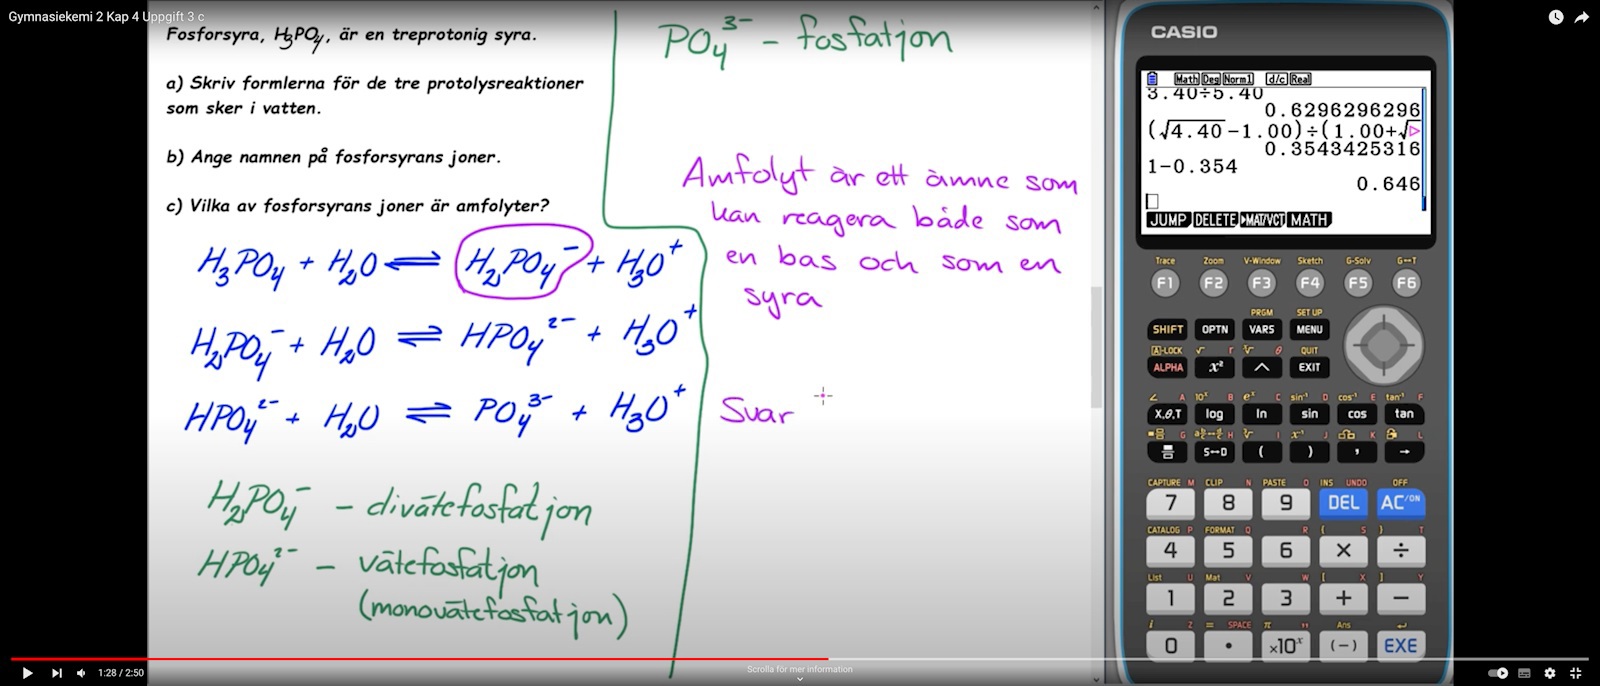 Gymnasiekemi 2 Kap 4 Uppgift 3 c
Fosforsyra, H₃PO₄, är en treprotonig syra.
a) Skriv formlerna för de tre protolysreaktioner
som sker i vatten.
b) Ange namnen på fosforsyrans joner.
c) Vilka av fosforsyrans joner är amfolyter?
H₃PO₄ + H₂O ⇌ H₂PO₄⁻ + H₃O⁺
H₂PO₄⁻ + H₂O ⇌ HPO₄²⁻ + H₃O⁺
HPO₄²⁻ + H₂O ⇌ PO₄³⁻ + H₃O⁺
H₂PO₄⁻ – divätefosfatjon
HPO₄²⁻ – vätefosfatjon
(monovätefosfatjon)
PO₄³⁻ – fosfatjon
Amfolyt är ett ämne som
kan reagera både som
en bas och som en
syra
Svar
CASIO
Math Deg Norm1 d/c Real
3.40÷5.40
0.6296296296
(√4.40-1.00)÷(1.00+√
0.3543425316
1-0.354
0.646
JUMP DELETE ▶MAT/VCT MATH
Trace Zoom V-Window Sketch G-Solv G↔T
F1 F2 F3 F4 F5 F6
PRGM SET UP
SHIFT OPTN VARS MENU
A-LOCK √ r ∛ θ QUIT
ALPHA x² ^ EXIT
∠ A 10ˣ B eˣ C sin⁻¹ D cos⁻¹ E tan⁻¹ F
X,θ,T log ln sin cos tan
G H ∛ I x⁻¹ J K L
S↔D ( ) , →
CAPTURE M CLIP N PASTE O INS UNDO OFF
7 8 9 DEL AC/ON
CATALOG P FORMAT Q R { S } T
4 5 6 × ÷
List U Mat V W [ X ] Y
1 2 3 + −
i Z = SPACE π " Ans
0 . ×10ˣ (−) EXE
1:28 / 2:50
Scrolla för mer information